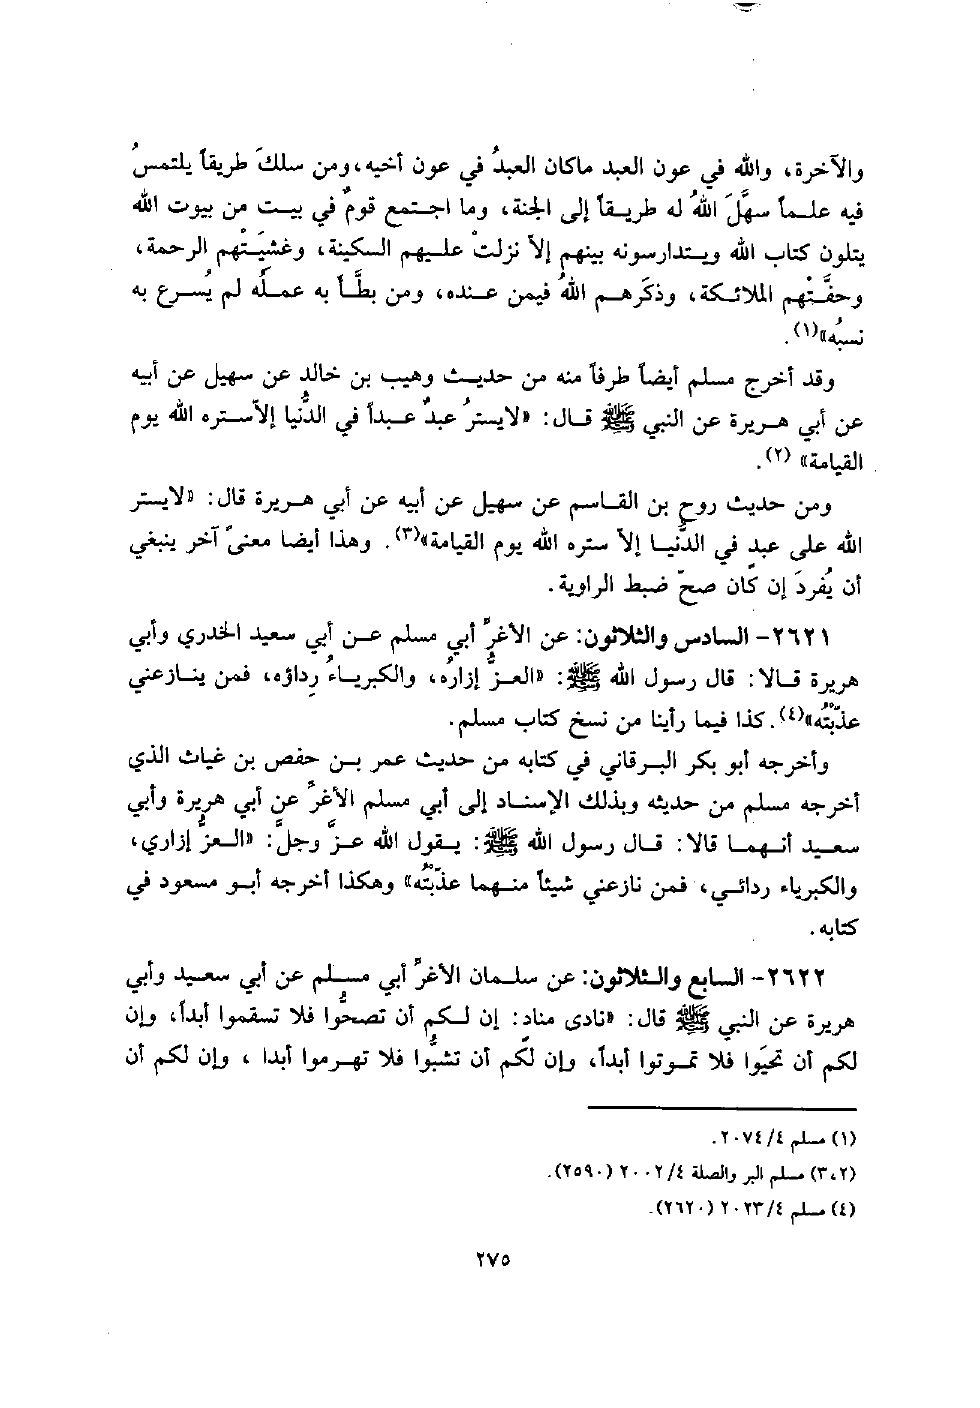 والآخرة، والله في عون العبد ماكان العبدُ في عون أخيه،ومن سلكَ طريقاً يلتمسُ
فيه علماً سهَّلَ اللهُ له طريقاً إلى الجنة، وما اجتمع قومٌ في بيت من بيوت الله
يتلون كتاب الله ويتدارسونه بينهم إلاّ نزلتْ عليهم السكينة، وغشيَتْهم الرحمة،
وحفَّتْهم الملائكة، وذكَرهم اللهُ فيمن عنده، ومن بطَّأ به عملُه لم يُسرع به
نسبُه»(١).
وقد أخرج مسلم أيضاً طرفاً منه من حديث وهيب بن خالد عن سهيل عن أبيه
عن أبي هريرة عن النبي ﷺ قال: «لايسترُ عبدٌ عبداً في الدُّنيا إلاّستره الله يوم
القيامة» (٢).
ومن حديث روح بن القاسم عن سهيل عن أبيه عن أبي هريرة قال: «لايستر
الله على عبدٍ في الدُّنيا إلاّ ستره الله يوم القيامة»(٣). وهذا أيضا معنىً آخر ينبغي
أن يُفردَ إن كان صحّ ضبط الراوية.
٢٦٢١- السادس والثلاثون: عن الأغرِّ أبي مسلم عن أبي سعيد الخدري وأبي
هريرة قالا: قال رسول الله ﷺ: «العزُّ إزارُه، والكبرياءُ رِداؤه، فمن ينازعني
عذّبْتُه»(٤). كذا فيما رأينا من نسخ كتاب مسلم.
وأخرجه أبو بكر البرقاني في كتابه من حديث عمر بن حفص بن غياث الذي
أخرجه مسلم من حديثه وبذلك الإسناد إلى أبي مسلم الأغرِّ عن أبي هريرة وأبي
سعيد أنهما قالا: قال رسول الله ﷺ: يقول الله عزَّ وجلَّ: «العزُّ إزاري،
والكبرياء ردائي، فمن نازعني شيئاً منهما عذّبْتُه» وهكذا أخرجه أبو مسعود في
كتابه.
٢٦٢٢- السابع والثلاثون: عن سلمان الأغرِّ أبي مسلم عن أبي سعيد وأبي
هريرة عن النبي ﷺ قال: «نادى مناد: إن لكم أن تصحُّوا فلا تسقموا أبداً، وإن
لكم أن تحيَوا فلا تموتوا أبداً، وإن لكم أن تشبُّوا فلا تهرموا أبدا ، وإن لكم أن
(١) مسلم ٢٠٧٤/٤.
(٣،٢) مسلم البر والصلة ٢٠٠٢/٤ (٢٥٩٠).
(٤) مسلم ٢٠٢٣/٤ (٢٦٢٠).
٢٧٥